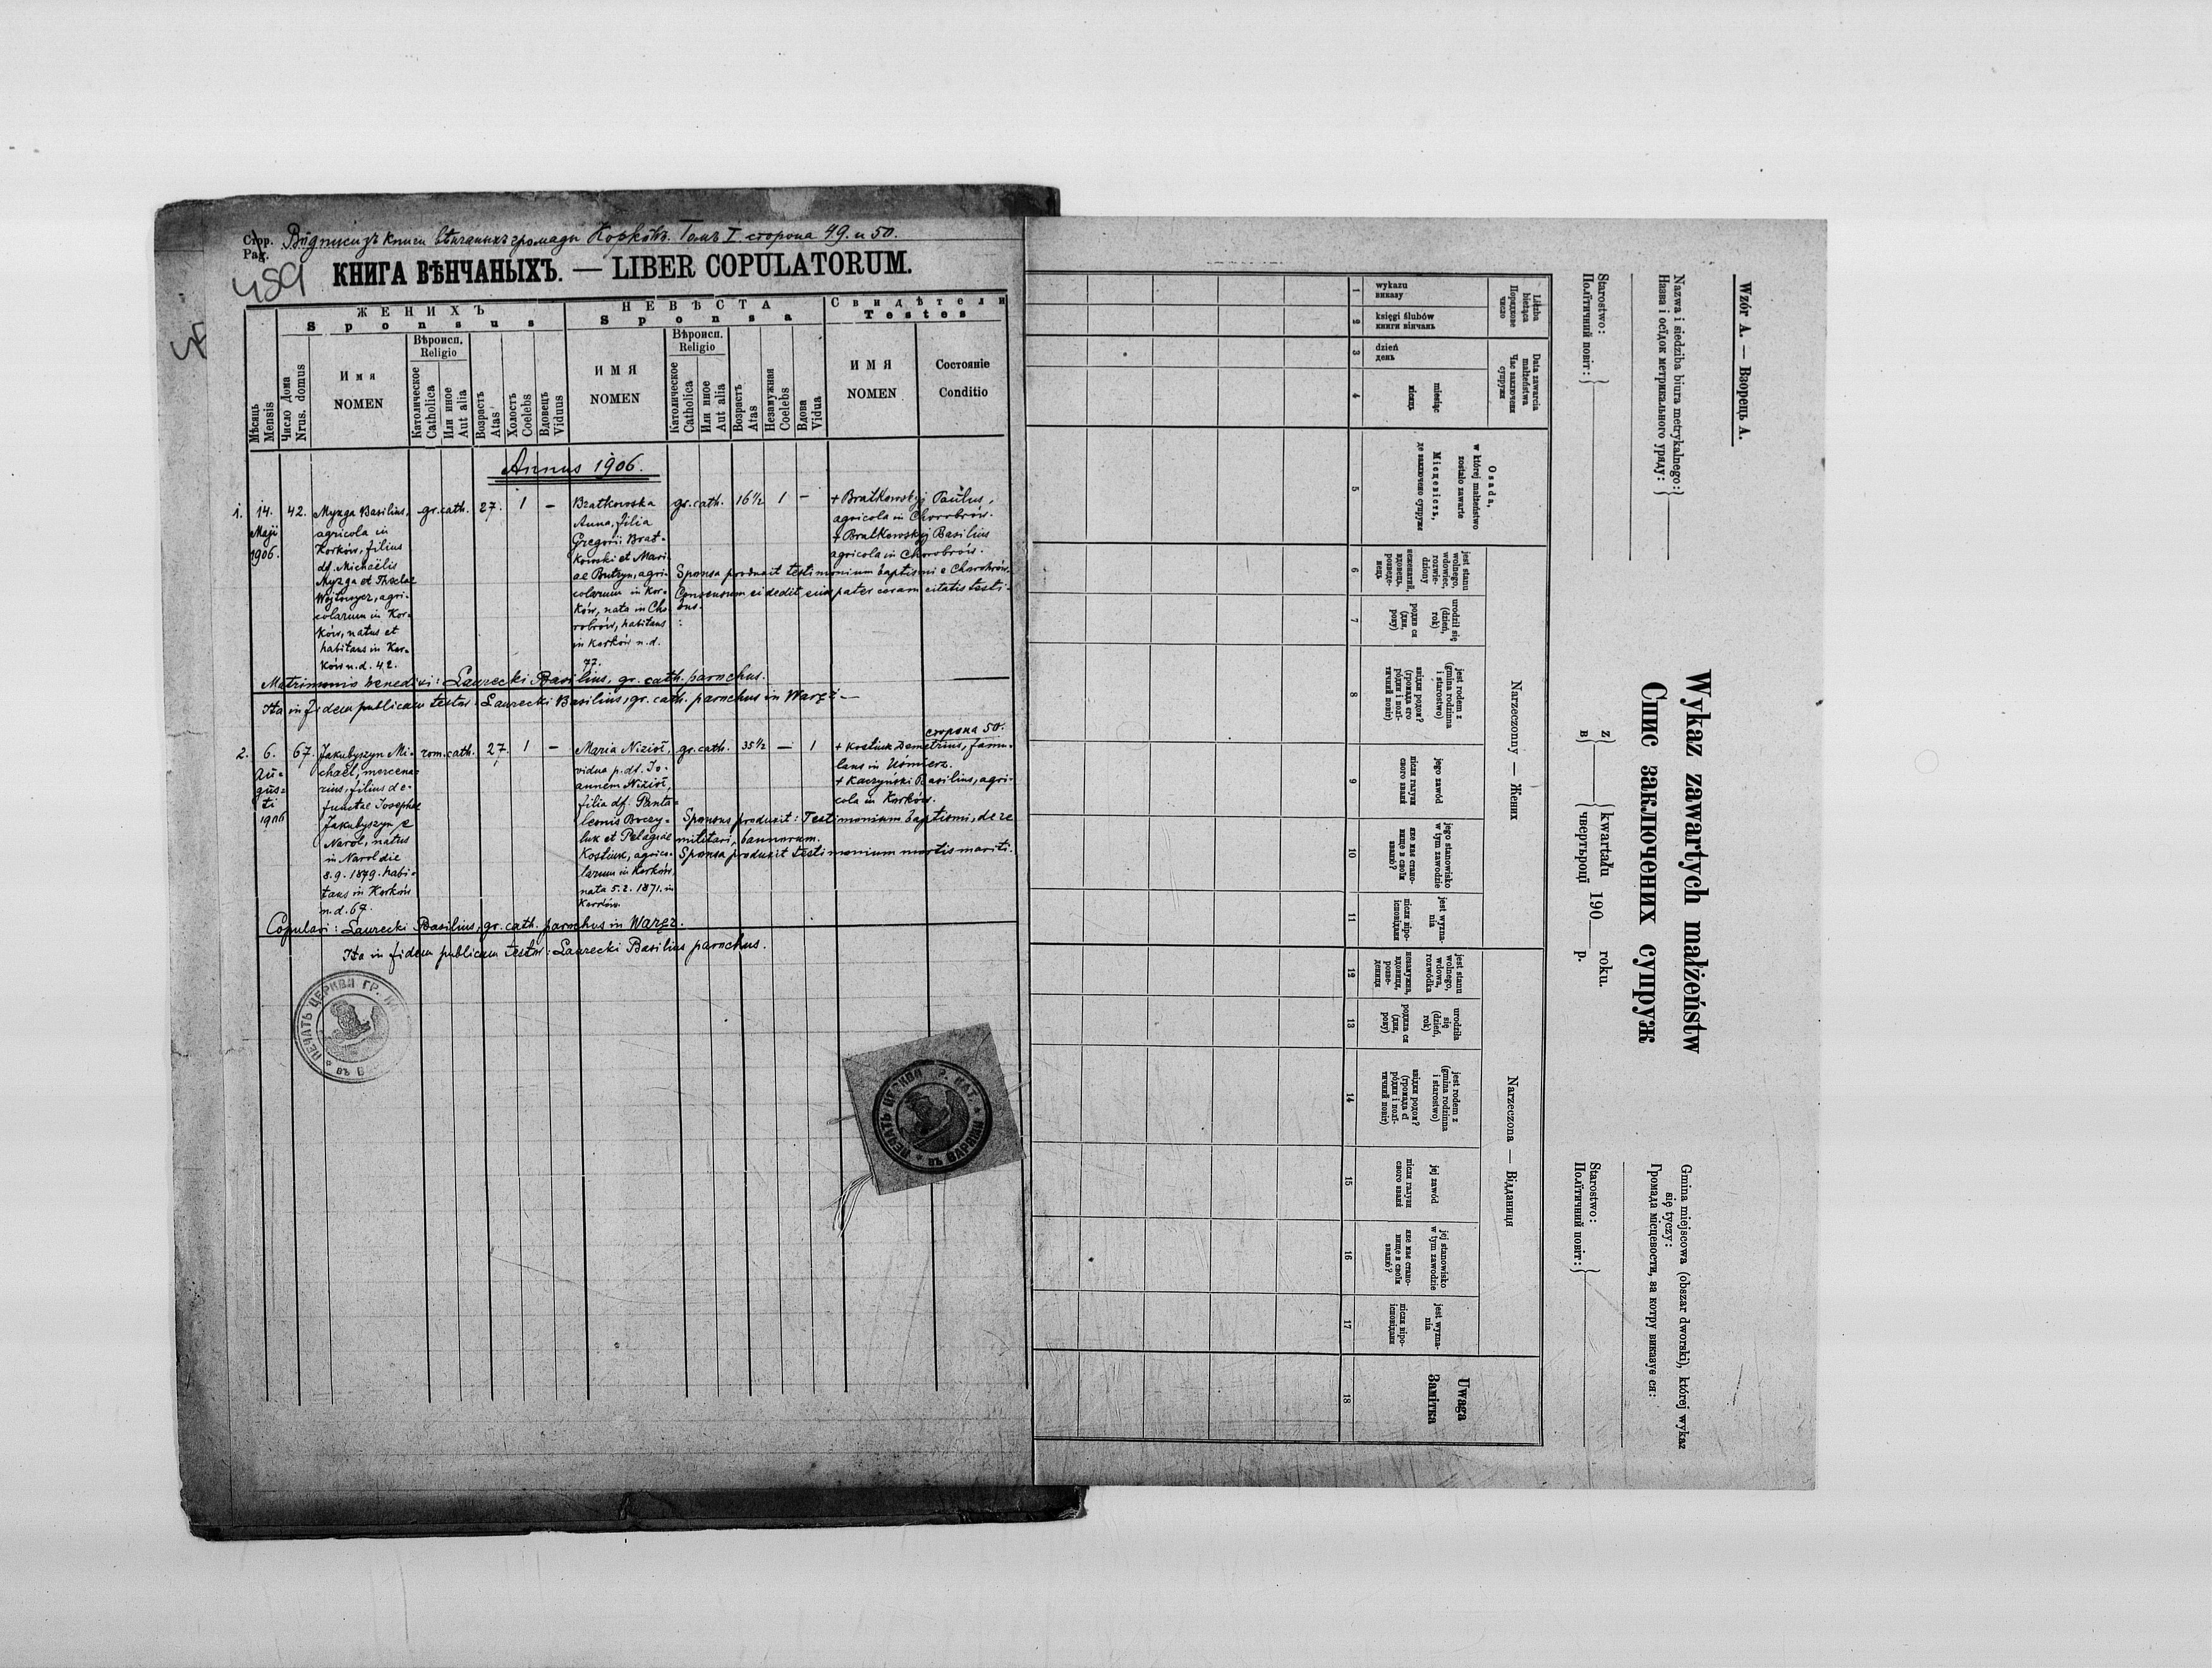 Стор.
Pag.
Вiдписи зъ книги вѣнчаныхъ громады Корковъ. Томъ I. сторона 49. и 50.
489
КНИГА ВѢНЧАНЫХЪ. — LIBER COPULATORUM.
ЖЕНИХЪ
Sponsus
НЕВѢСТА
Sponsa
Свидѣтели
Testes
Мѣсяць
Mensis
Число Дома
Nrus. domus
Имя
NOMEN
Вѣроисп.
Religio
Католическое
Catholica
Или иное
Aut alia
Возрастъ
Atas
Холостъ
Coelebs
Вдовецъ
Viduus
ИМЯ
NOMEN
Вѣроисп.
Religio
Католическое
Catholica
Или иное
Aut alia
Возрастъ
Atas
Незамужная
Coelebs
Вдова
Vidua
ИМЯ
NOMEN
Состояніе
Conditio
Annus 1906.
1.
14.
Maji
1906.
42.
Myzga Basilius,
agricola in
Korków, filius
df. Michaëlis
Myzga et Theclae
Wojtowycz, agri-
colarum in Kor-
ków, natus et
habitans in Kor-
ków n.d. 42.
gr. cath.
27.
1
—
Bratkowska
Anna, filia
Gregorii Brat-
kowski et Mari-
ae Butryn, agri-
colarum in Kor-
ków, nata in Cho
robrów, habitans
in Korków n.d.
77.
gr. cath.
16 1/2
1
—
+ Bratkowskyj Paulus,
agricola in Chorobrów.
+ Bratkowskyj Basilius
agricola in Chorobrów.
Sponsa produxit testimonium baptismi e Chorobrów.
Consensum ei dedit eius pater coram citatis testi-
bus.
Matrimonio benedixi: Laurecki Basilius, gr. cath. parochus.
Ita in fidem publicam testor: Laurecki Basilius, gr. cath. parochus in Waręż —
сторона 50.
2.
6.
Au-
gus-
ti
1906
67.
Jakubyszyn Mi-
chaël, mercena-
rius, filius de-
functae Josephae
Jakubyszyn e
Narol, natus
in Narol die
8.9. 1879. habi-
tans in Korków
n.d. 67.
rom. cath.
27.
1
—
Maria Nizioł,
vidua p. df. Jo-
annem Nizioł,
filia df. Panta-
leonis Boczy-
luk et Pelagiae
Kostiuk, agrico-
larum in Korków,
nata 5.2. 1871. in
Korków.
gr. cath.
35 1/2
—
1
+ Kostiuk Demetrius, famu-
lans in Uśmierz.
+ Kaczyński Basilius, agri-
cola in Korków.
Sponsus produxit: Testimonium baptismi, de re
militari, bannorum.
Sponsa produxit testimonium mortis mariti.
Copulavi: Laurecki Basilius, gr. cath. parochus in Waręż.
Ita in fidem publicam testor: Laurecki Basilius parochus.
ПЕЧАТЬ ЦЕРКВИ ГР.
ПЕЧАТЬ ЦЕРКВИ ГР. КАТ. въ ВАРЯЖИ
Wzór A. — Взорець А.
Nazwa i siedziba biura metrykalnego:
Назва і осїдок метрикального уряду:
Starostwo:
Полїтичний повіт:
Wykaz zawartych małżeństw
Спис заключених супруж
z
в
kwartału
чвертьроцї
190
roku.
р.
Gmina miejscowa (obszar dworski), której wykaz
się tyczy:
Громада місцевости, за котру виказує ся:
Starostwo:
Полїтичний повіт:
Liczba
bieżąca
Порядкове
число
wykazu
виказу
księgi ślubów
книги вінчань
Data zawarcia
małżeństwa
Час заключеня
супружа
dzień
день
miesiąc
місяць
Osada,
w której małżeństwo
zostało zawarte
Місцевість,
де заключено супруже
Narzeczony — Жених
jest stanu
wolnego,
wdowiec,
rozwie-
dziony
неженатий,
вдовець,
розведе-
нець
urodził się
(dzień,
rok)
родив ся
(дня,
року)
jest rodem z
(gmina rodzinna
i starostwo)
звідки родом?
(громада єго
родин і полї-
тичний повіт)
jego zawód
після галузи
свого званя
jego stanowisko
w tym zawodzie
яке має стано-
вище в своїм
званю?
jest wyzna-
nia
після віро-
ісповіданя
Narzeczona — Відданиця
jest stanu
wolnego,
wdowa,
rozwódka
незамужна,
вдовиця,
розве-
дениця
urodziła
się
(dzień,
rok)
родила ся
(дня,
року)
jest rodem z
(gmina rodzinna
i starostwo)
звідки родом?
(громада єї
родин і полї-
тичний повіт)
jej zawód
після галузи
свого званя
jej stanowisko
w tym zawodzie
яке має стано-
вище в своїм
званю?
jest wyzna-
nia
після віро-
ісповіданя
Uwaga
Замітка
1
2
3
4
5
6
7
8
9
10
11
12
13
14
15
16
17
18